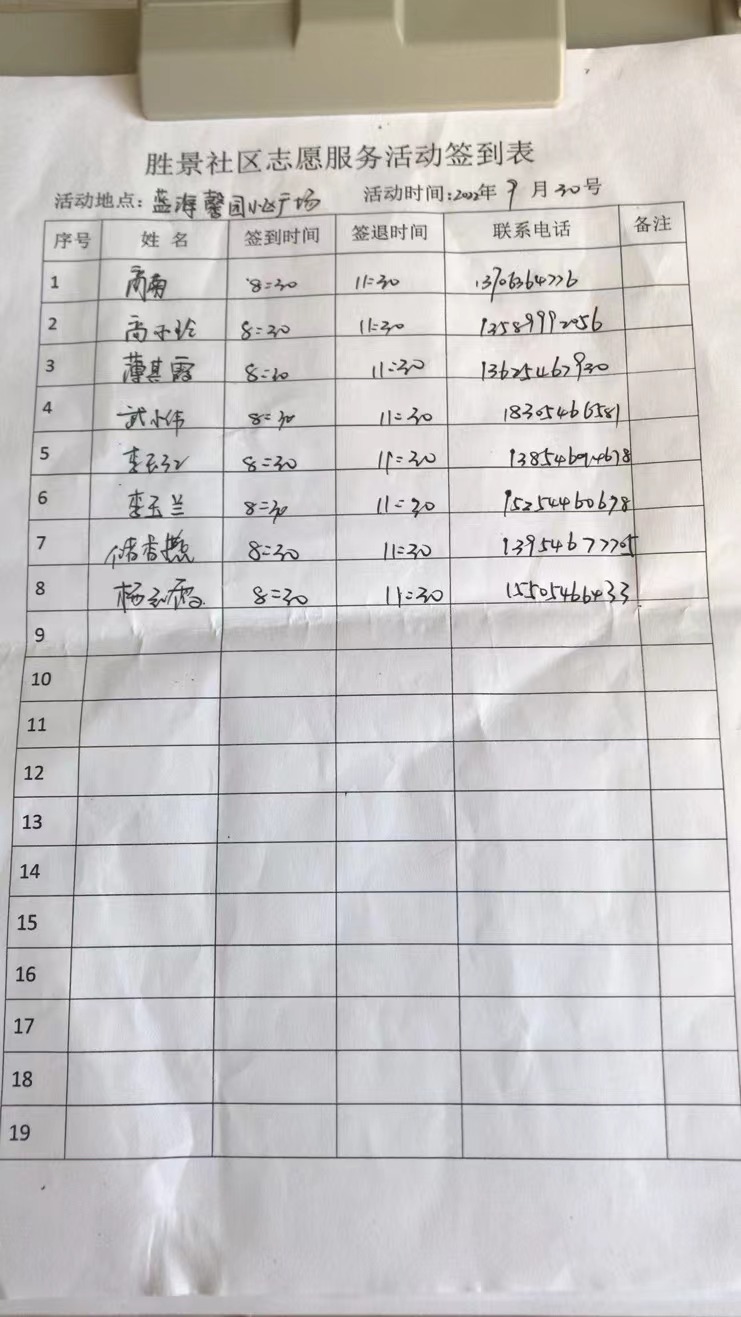 胜景社区志愿服务活动签到表
活动地点：蓝海馨园小区广场 活动时间:2022年9月30号
序号 姓名 签到时间 签退时间 联系电话 备注
1 8=30 11=30 13706364776
2 8=30 11=30 13589992056
3 薄其霞 8=30 11=30 13625467930
4 武小伟 8=30 11=30 18305466581
5 8=30 11=30
6 李玉兰 8=30 11=30 15254460678
7 8=30 11=30 13954677705
8 8=30 11=30 15505466433
9
10
11
12
13
14
15
16
17
18
19